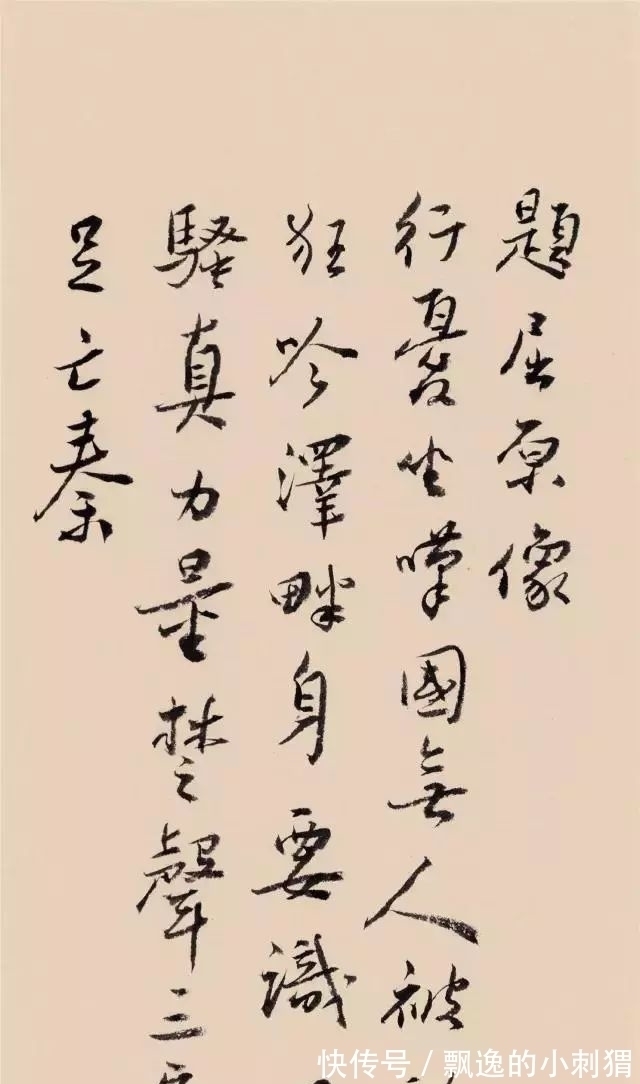 題屈原像
行憂坐嘆國無人被
狂吟澤畔身要識
騷真力量楚聲三
足亡秦
快传号 / 飘逸的小刺猬